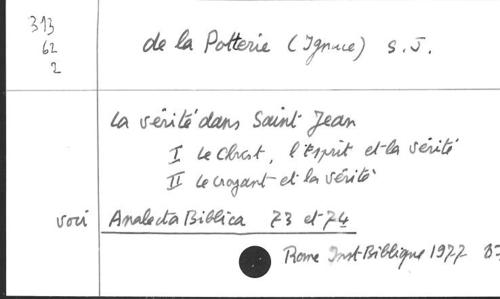 313
62
2
de la Potterie (Ignace) S.J.
La vérité dans Saint Jean
I Le Christ, l'Esprit et la vérité
II Le croyant et la vérité
voir Analecta Biblica 73 et 74
Rome Inst Biblique 1977